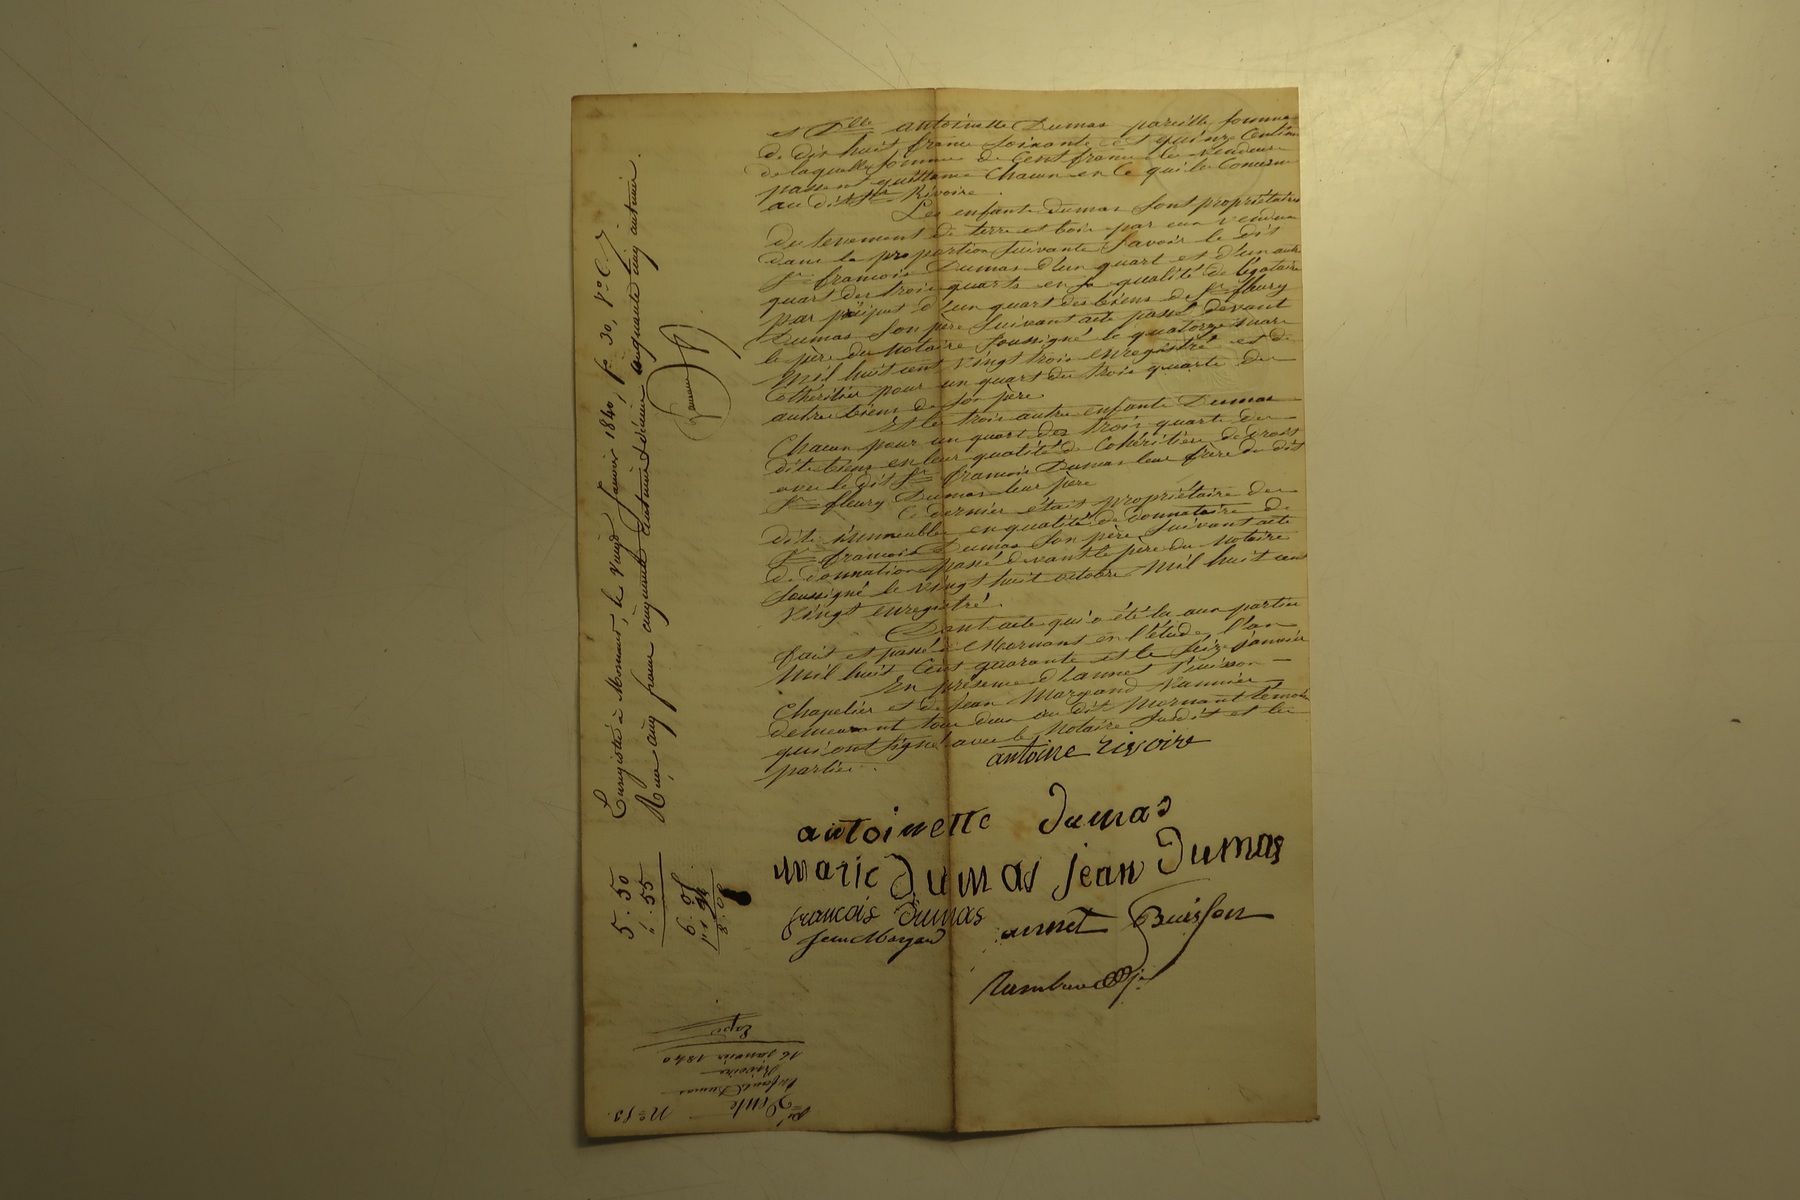 et Dlle antoinette Dumas pareille somme
de dix huit francs soixante et quinze Centimes
de laquelle somme de Cent francs les vendeurs
passent quittance Chacun en Ce qui le Concerne
au dit Sr Rivoire.
Les enfants Dumas sont propriétaires
du tenement de terre et bois par eux vendu
dans la proportion suivante Savoir le dit
Sr francois Dumas d'un quart et d'un autre
quart des trois quarts en sa qualité de légataire
par préciput d'un quart des biens de Sr fleury
Dumas son père suivant acte passé devant
le père du Notaire soussigné le quatorze mars
Mil huit cent vingt trois enregistré et de
Cohéritier pour un quart des trois quarts des
autres biens de son père.
Et les trois autres enfants Dumas
Chacun pour un quart des trois quarts des
dits biens en leur qualité de Cohéritiers de droit
avec le dit Sr francois Dumas leur frère du dit
Sr fleury Dumas leur père
Ce dernier était propriétaire des
dits immeubles en qualité de donnataire de
Sr francois Dumas son père suivant acte
de donnation passé devant le père du Notaire
soussigné le vingt huit octobre Mil huit cent
vingt enregistré.
Dont acte qui a été lu aux parties
fait et passé à Mornant en l'étude, l'an
Mil huit Cent quarante et le seize janvier
En présence d'annet Buisson
Chapelier et de Jean Margand Vannier
demeurant tous deux au dit Mornant témoins
qui ont signé avec le Notaire susdit et les
parties.
antoine rivoire
antoinette Dumas
marie Dumas jean Dumas
francois Dumas annet Buisson
Jean Margand
Enregistré à Mornant, le vingt Janvier 1840, fo 30, Vo C. 7
Reçu cinq francs cinquante centimes décime cinquante cinq centimes.
5.50
".55
6.05
8.05
No 50.
Vente
Enfants Dumas
Rivoire
16 janvier 1840
Expée